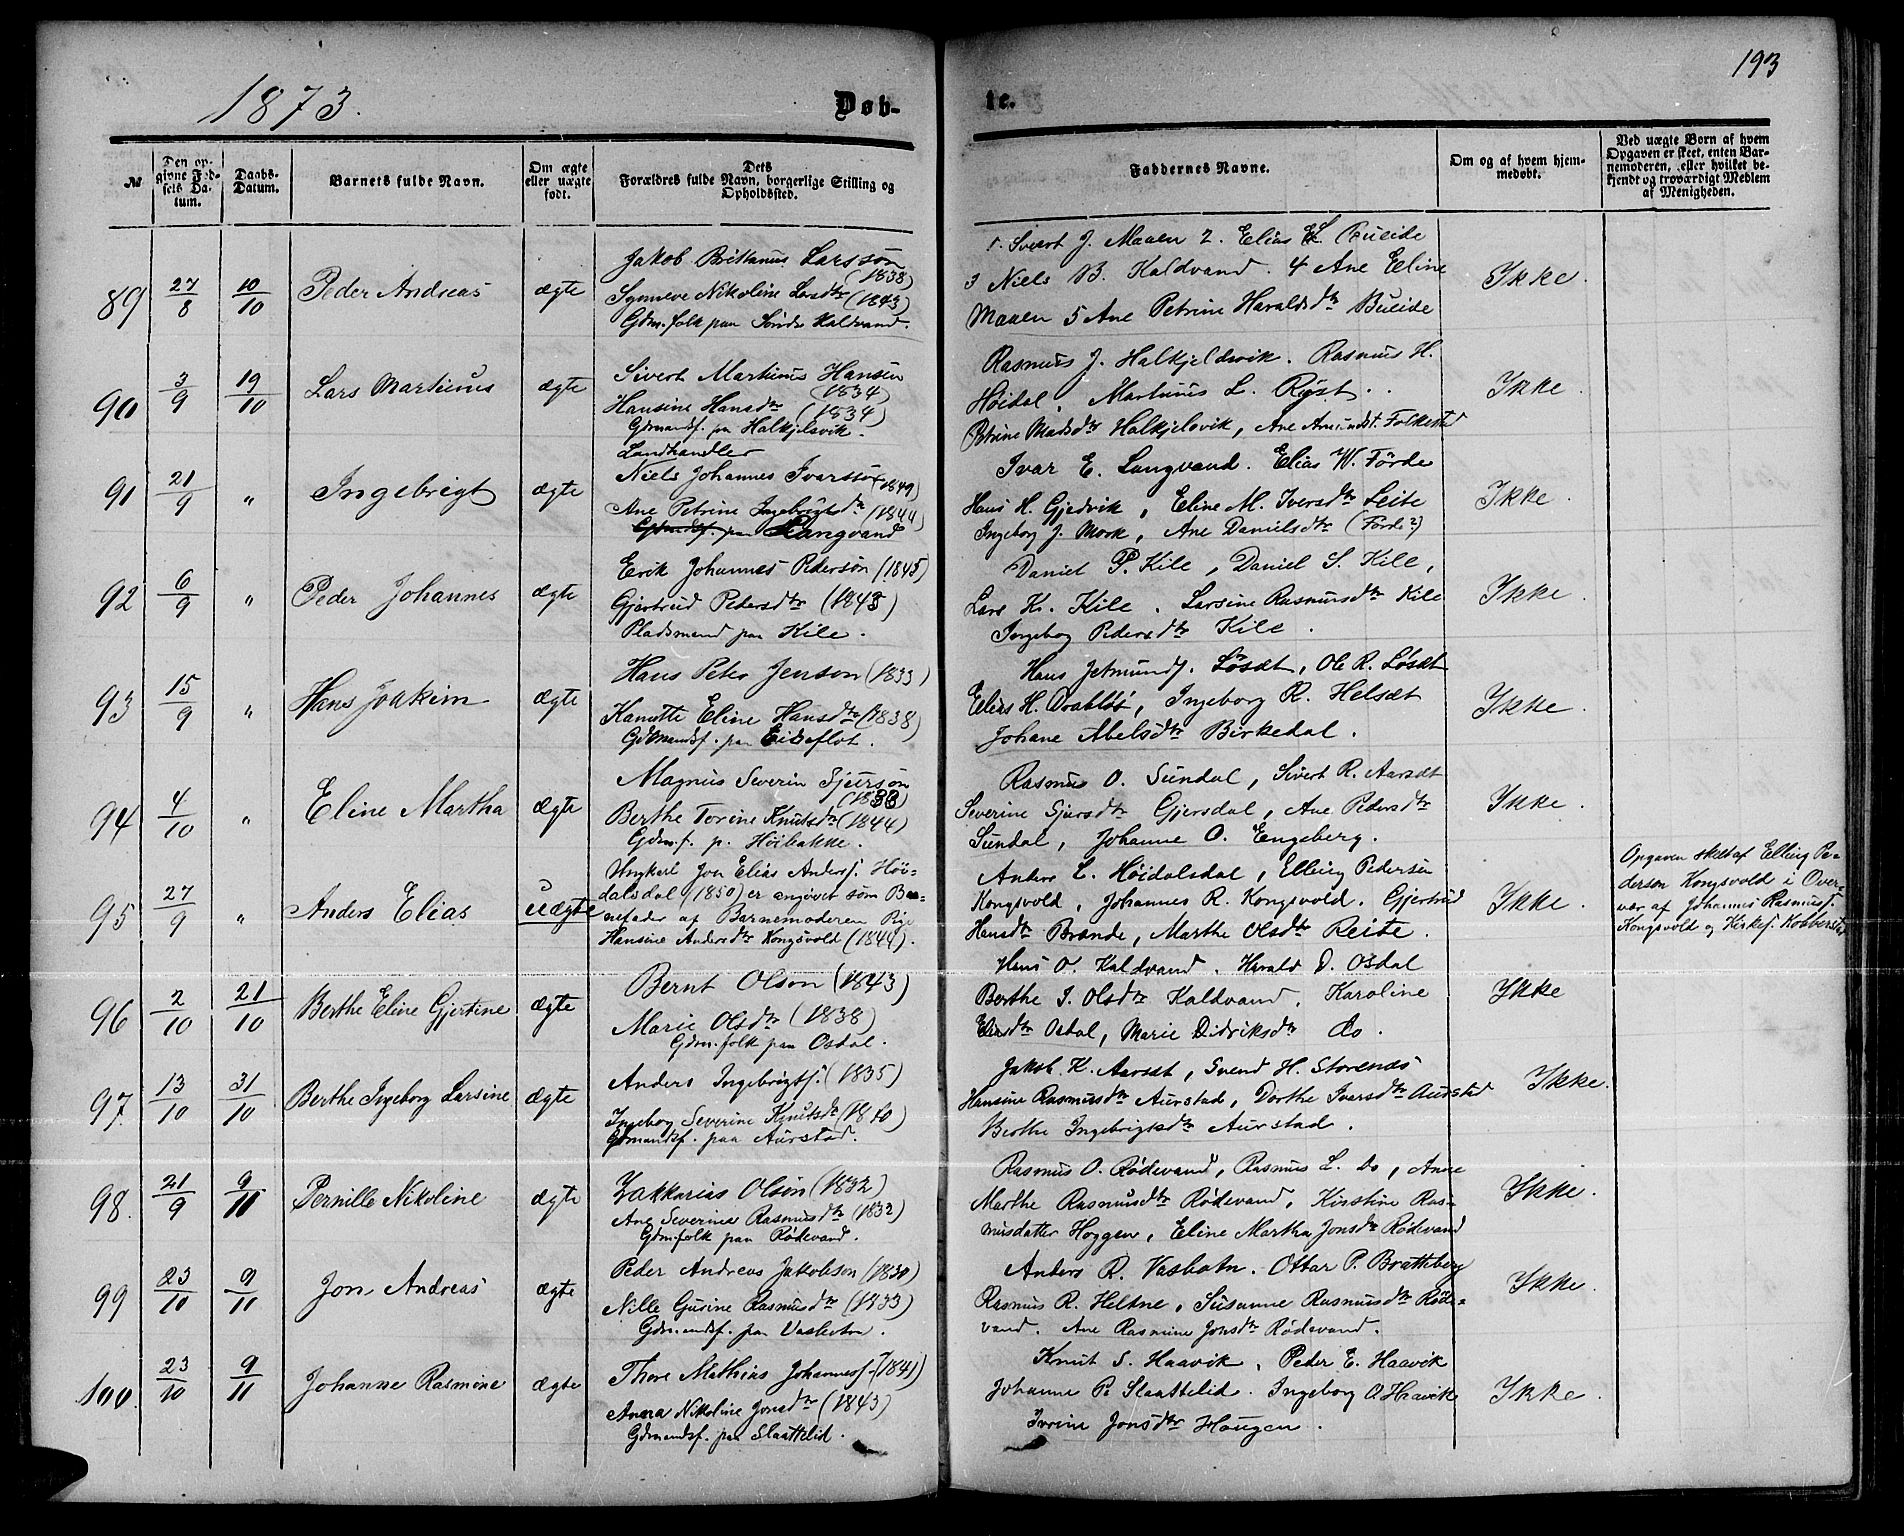 1873.
Døb-
te.
193
№
Den op-
givne Fød-
sels Da-
tum.
Daabs-
Datum.
Barnets fulde Navn.
Om ægte
eller uægte
født.
Dets
Forældres fulde Navn, borgerlige Stilling og
Opholdssted.
Faddernes Navne.
Om og af hvem hjem-
medøbt.
Ved uægte Børn af hvem
Opgaven er skeet, enten Bar-
nemoderen, eller hvilket be-
kjendt og troværdigt Medlem
af Menigheden.
89 27/8 10/10 Peder Andreas ægte
Jakob Brittanus Larssøn
(1838)
Synneve Nikoline Larsdtr (1843)
Gdm.folk paa Søndre Kaldvand.
1. Sivert J. Maaen 2. Elias E. Bueide
3 Niels B. Kaldvand. 4 Ane Eline
Maaen 5 Ane Petrine Haraldsdtr Bueide
Ikke.
90 3/9 19/10 Lars Martinus ægte
Sivert Martinus Hansen
(1834)
Hansine Hansdtr (1834)
Gdmandsf. pa Halkjelsvik.
Rasmus J. Halkjeldsvik. Rasmus H.
Høidal, Martinus L. Ryst.
Petrine Madsdtr Halkjelsvik, Ane Amundsd. Folkestad
Ikke.
91 21/9 " Ingebrigt ægte
Landhandler
Niels Johannes Ivarssøn (1849)
Ane Petrine Ingebrigtsdtr (1844)
Gdmandsf. paa Langvand
Ivar E. Langvand. Elias W. Førde
Hans H. Gjedvik, Eline M. Iversdtr Leite
Ingeborg J. Mork, Ane Danielsdtr (Førde?)
Ikke.
92 6/9 " Peder Johannes ægte
Erik Johannes Pedersøn (1845)
Gjertrud Pedersdtr (1843)
Pladsmand paa Kile.
Daniel P. Kile, Daniel S. Kile,
Lars K. Kile. Larsine Rasmusdtr Kile
Ingeborg Pedersdtr Kile.
Ikke.
93 15/9 " Hans Joakim ægte
Hans Peter Jenson (1833)
Kanutte Eline Hansdtr (1838)
Gdmandsf. paa Eidseflot.
Hans Jetmundf. Løsæt, Ole R. Løsæt
Elias H. Drabløs, Ingeborg R. Helsæt
Johane Abelsdtr Birkedal.
Ikke.
94 4/10 " Eline Martha ægte
Magnus Severin Sjursøn
(1838)
Berthe Torine Knutsdtr (1844)
Gdm.f. p. Høibakke.
Rasmus O. Sundal, Sivert R. Aarsæt
Severine Sjursdtr Gjersdal, Ane Pedersdtr
Sundal, Johanne O. Engeberg.
Ikke.
95 27/9 " Anders Elias uægte
Ungkarl Jon Elias Andersf. Høi-
dalsdal (1850) er angivet som Bar-
nefader af Barnemoderen Pige
Hansine Andersdtr Kongsvold (1844).
Anders L. Høidalsdal, Elling Pedersen
Kongsvold, Johannes R. Kongsvold. Gjertrud
Hansdtr Brænde, Marthe Olsdtr Reite.
Ikke.
Opgaven skeet af Elling Pe-
dersen Kongsvold i Over-
vær af Johannes Rasmusf.
Kongsvold og Kirkes. Kobberstad
96 2/10 21/10 Berthe Eline Gjertine ægte
Bernt Olson (1843)
Marie Olsdtr (1838)
Gdm.folk paa Osdal.
Hans O. Kaldvand. Harald D. Osdal
Berthe I. Olsdtr Kaldvand. Karoline
Eliasdtr Osdal, Marie Didriksdtr do.
Ikke
97. 13/10 31/10 Berthe Ingeborg Larsine ægte
Anders Ingebrigtf. (1835)
Ingeborg Severine Knutsdtr (1840)
Gdmandsf. paa Aurstad.
Jakob K. Aarsæt, Svend H. Storenæs
Hansine Rasmusdtr Aurstad, Dorthe Ivarsdtr Aurstad
Berthe Ingebrigtsdtr Aurstad.
Ikke.
98. 21/9 9/11 Pernille Nikoline ægte
Zakkarias Olsøn (1832)
Ane Severine Rasmusdtr (1832)
Gdm.folk paa Rødevand.
Rasmus O. Rødevand, Rasmus L. do, Anne
Marthe Rasmusdtr Rødevand, Kirstine Ras-
musdatter Hoggen, Eline Martha Jonsdtr Rødevand
Ikke.
99 23/10 9/11 Jon Andreas ægte
Peder Andreas Jakobson (1830)
Nille Gurine Rasmusdtr (1833)
Gdmandsf. paa Vasbotn.
Anders R. Vasbotn. Ottar P. Bratteberg
Rasmus R. Heltne, Susanne Rasmusdtr Røde-
vand. Ane Rasmine Jonsdtr Rødevand.
Ikke.
100 23/10 9/11 Johanne Rasmine ægte
Thore Mathias Johannesf. (1841)
Anna Nikoline Jonsdtr (1843)
Gdmandsf. paa Slaattelid.
Knut S. Haavik, Peder E. Haavik
Johanne P. Slaattelid. Ingeborg O. Haavik
Iverine Jonsdtr Haugen.
Ikke.